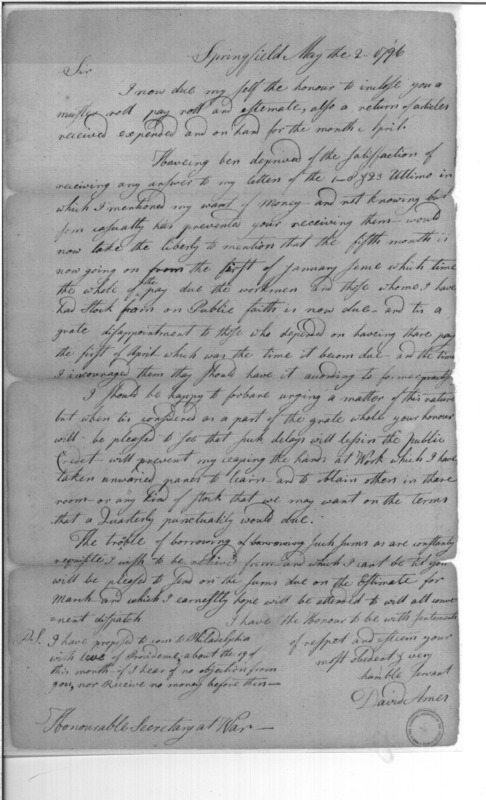 Springfield May the 2 1796
Sir
I now due my self the honour to inclose you a
muster roll pay roll and estemate, also a return of articles
received expended and on hand for the month April.
Haveing ben deprived of the satisfaction of
receiving any answer to my letters of the & 23 Ultimo in
which I mentioned my want of Money - and not knowing but
som casualty has prevented your receiving them - would
now take the liberty to mention that the fifth month is
now going on from the first of January sence which time
the whole of the pay due the workmen and those whome I have
had Stock from on Public faith is now due - and tis a
grate disappointment to those who depended on haveing thare pay
the first of April which was the time it becom due - and the time
I incouraged them they should have it acording to former
I should be happy to forbare urging a matter of this nature
but when tis considered as a part of the grate whole your honour
will be pleased to see that such delays will lessin the public
Credet - will prevent my keaping the hands at Work which I have
taken unwaried panes to learn and to obtain others in thare
room - or any kind of stock that we may want on the terms
that a Quarterly punctuality would due.
The troble of borrowing of borrowing such sums as are constantly
requisite I wish to be relieved from and which I cant be til you
will be pleased to send on the sums due on the Estimate for
March and which I earnestly hope will be attended to will all conve
nent dispatch I have the Honour to be with sentiments
of respect and esteem your
most Obedent & very
humble servant
David Ames
P.S. I have proposed to com to Philadelphia
with leave of Providence about the 19 of
this month - if I hear of no objection from
you, nor receive no money before then -
Honourable Secretary at War -